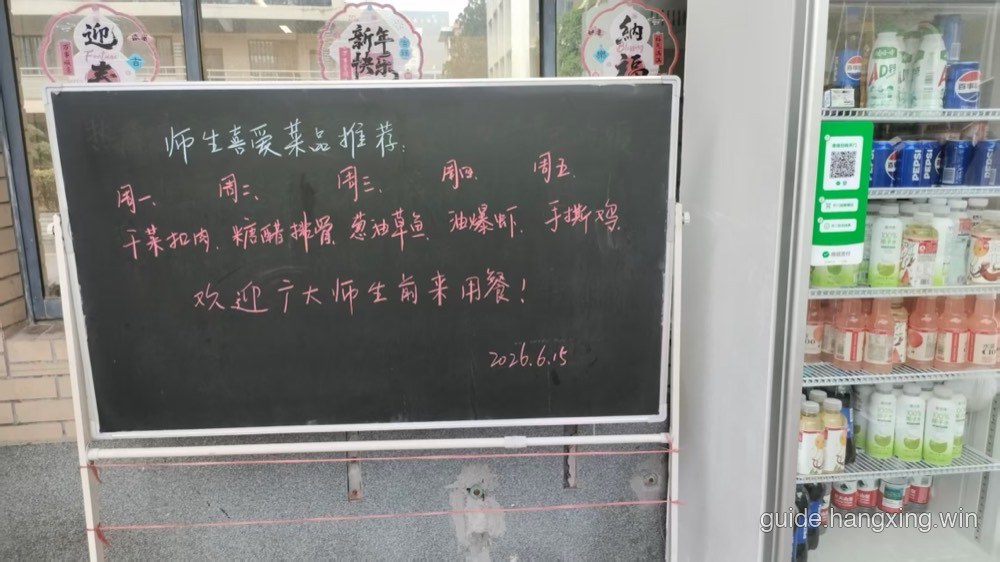 迎
春
新年
快乐
纳
福
师生喜爱菜品推荐:
周一、 周二、 周三、 周四、 周五、
干菜扣肉、 糖醋排骨、 葱油草鱼、 油爆虾、 手撕鸡、
欢迎广大师生前来用餐!
2026.6.15
AD
PEPSI
PEPSI
guide.hangxing.win